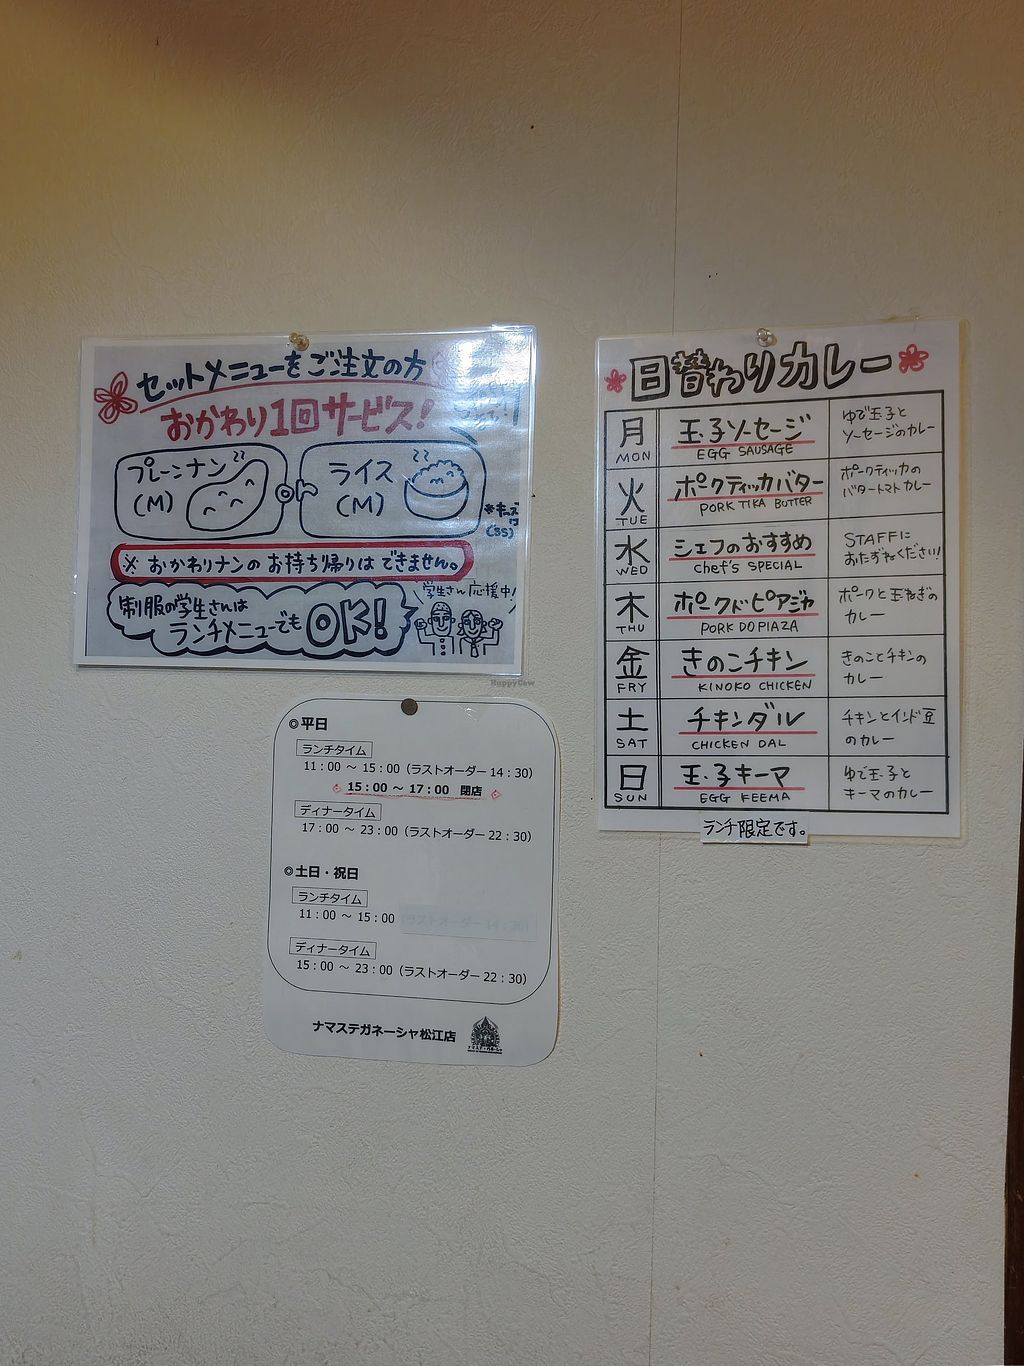 セットメニューをご注文の方
おかわり1回サービス!
プレーンナン
(M)
or
ライス
(M)
*キッズは
(SS)
※ おかわりナンの お持ち帰りは できません。
制服の学生さんは
ランチメニューでも OK!
学生さん応援中!
HappyCow
◎平日
ランチタイム
11:00 ～ 15:00 (ラストオーダー 14:30)
15:00 ～ 17:00 閉店
ディナータイム
17:00 ～ 23:00 (ラストオーダー 22:30)
◎土日・祝日
ランチタイム
11:00 ～ 15:00 (ラストオーダー 14:30)
ディナータイム
15:00 ～ 23:00 (ラストオーダー 22:30)
ナマステガネーシャ松江店
日替わりカレー
月 MON 玉子ソーセージ EGG SAUSAGE ゆで玉子とソーセージのカレー
火 TUE ポークティッカバター PORK TIKA BUTTER ポークティッカのバタートマトカレー
水 WED シェフのおすすめ Chef's SPECIAL STAFFにおたずねください!
木 THU ポークドピアジャ PORK DOPIAZA ポークと玉ねぎのカレー
金 FRY きのこチキン KINOKO CHICKEN きのことチキンのカレー
土 SAT チキンダル CHICKEN DAL チキンとインド豆のカレー
日 SUN 玉子キーマ EGG KEEMA ゆで玉子とキーマのカレー
ランチ限定です。